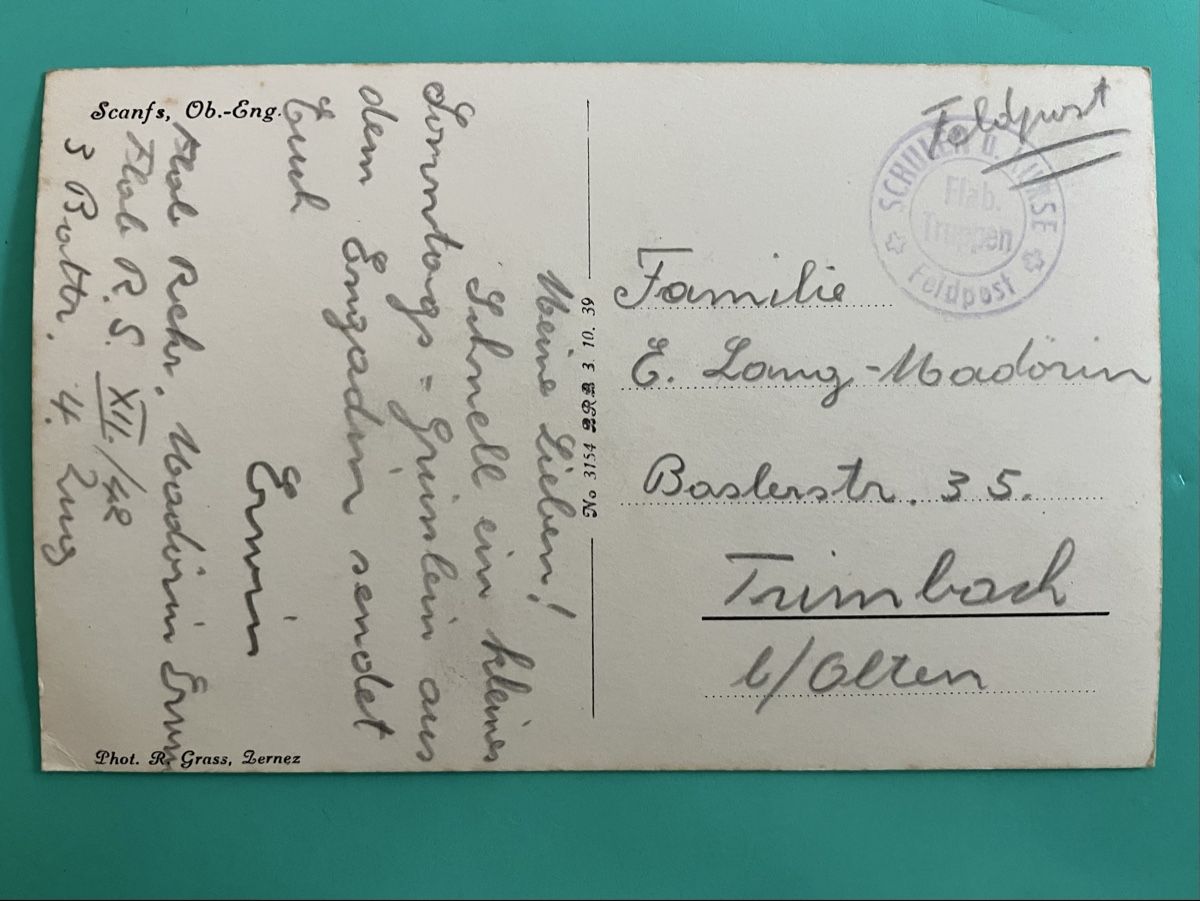 Scanfs, Ob.-Eng.
Meine Lieben!
Schnell ein kleines
Sonntags = Grüsslein aus
dem Engadin sendet
Euch
Erwin
Flab Rekr. Madörin Erwin
Flab R.S. XII./48
3 Battr. 4. Zug
Phot. R. Grass, Zernez
No 3154 BRB 3. 10. 39
Feldpost
SCHULEN U. KURSE
Flab.
Truppen
Feldpost
Familie
E. Lang-Madörin
Baslerstr. 35.
Trimbach
b/Olten